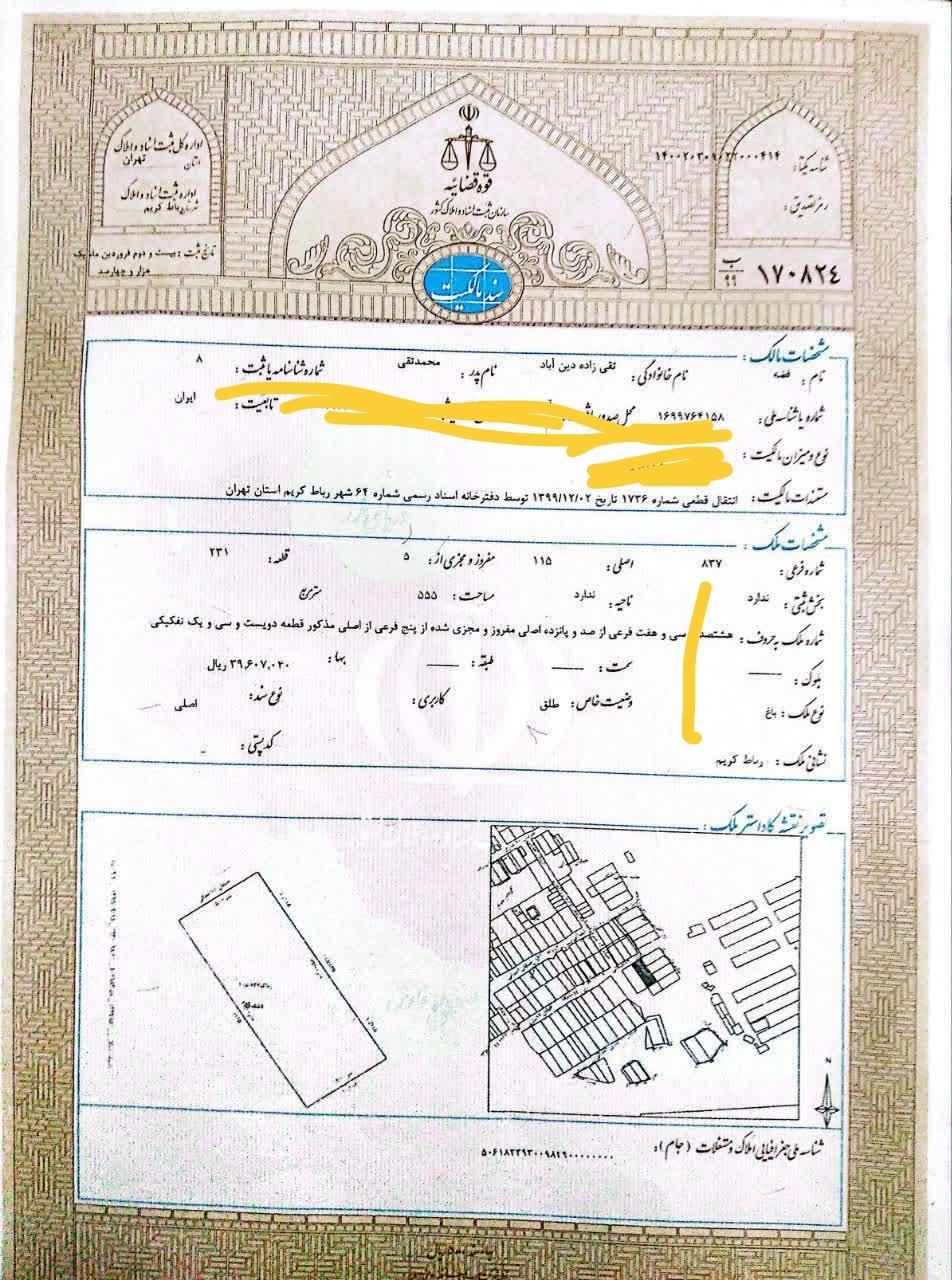 اداره کل ثبت اسناد و املاک
استان تهران
اداره ثبت اسناد و املاک
شهرستان رباط کریم
تاریخ ثبت : بیست و دوم فروردین ماه یک
هزار و چهارصد
قوه قضائیه
سازمان ثبت اسناد و املاک کشور
سند مالکیت
شناسه یکتا: ۱۴۰۰۲۰۳۰۹۰۲۲۰۰۰۴۱۴
رمز تصدیق:
۱۷۰۸۲۴ ب ۹۹
مشخصات مالک :
نام : فضه نام خانوادگی : تقی زاده دین آباد نام پدر : محمدتقی شماره شناسنامه یا ثبت : ۸
شماره یا شناسه ملی : ۱۶۹۹۷۶۴۱۵۸ محل صدور تابعیت : ایران
نوع و میزان مالکیت :
مستندات مالکیت : انتقال قطعی شماره ۱۷۳۶ تاریخ ۱۳۹۹/۱۲/۰۲ توسط دفترخانه اسناد رسمی شماره ۶۴ شهر رباط کریم استان تهران
مشخصات ملک :
شماره فرعی : ۸۳۷ اصلی : ۱۱۵ مفروز و مجزی از : ۵ قطعه : ۲۳۱
بخش ثبتی : ندارد ناحیه : ندارد مساحت : ۵۵۵ مترمربع
شماره ملک به حروف : هشتصد سی و هفت فرعی از صد و پانزده اصلی مفروز و مجزی شده از پنج فرعی از اصلی مذکور قطعه دویست و سی و یک تفکیکی
بلوک : —— سمت : —— طبقه : —— بها : ۳۹,۶۰۷,۰۴۰ ریال
نوع ملک : باغ وضعیت خاص : طلق کاربری : نوع سند : اصلی
نشانی ملک : رباط کریم کد پستی :
تصویر نقشه کاداستر ملک :
N
شناسه ملی جغرافیایی املاک و مستغلات (جام) : ۵۰۶۱۸۲۲۹۳۰۰۹۸۲۹۰۰۰۰۰۰۰۰۰